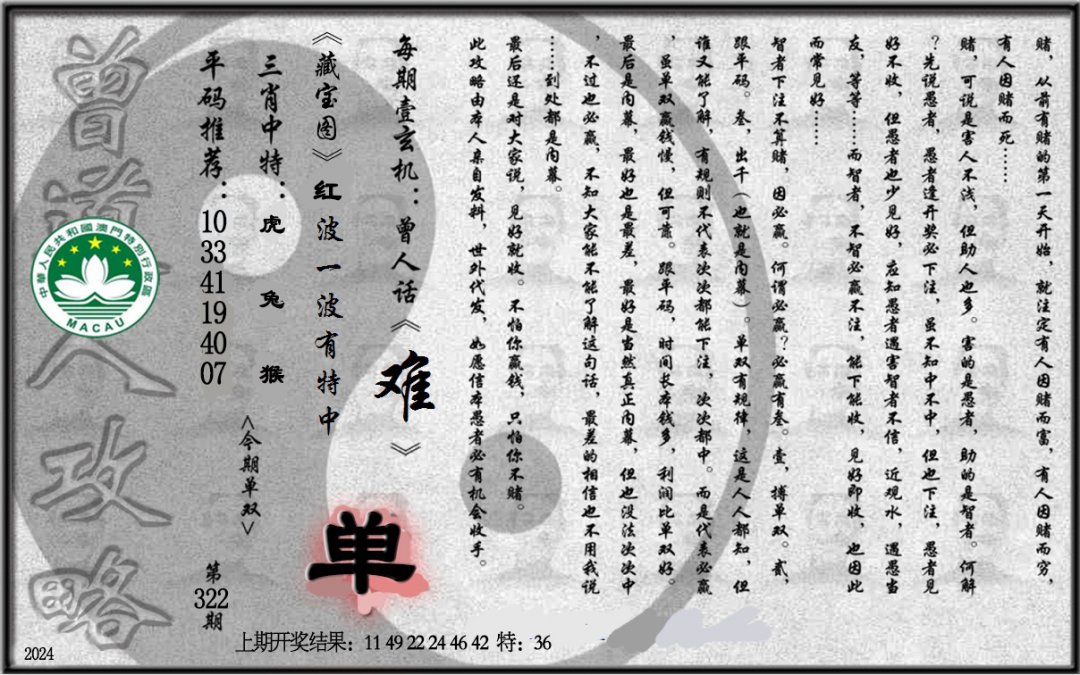 赌，从前有赌的第一天开始，就注定有人因赌而富，有人因赌而穷，
有人因赌而死……
赌，可说是害人不浅，但助人也多。害的是愚者，助的是智者。何解
？先说愚者，愚者逢开奖必下注，虽不知中不中，但也下注，愚者见
好不收，但愚者也少见好，应知愚者遇害智者不信，近观水，遇愚当
友，等等……而智者，不智必赢不注，能下能收，见好即收，也因此
而常见好……
智者下注不算赌，因必赢。何谓必赢？必赢有叁。壹，搏单双。贰，
跟单码。叁，出千（也就是内幕）。单双有规律，这是人人都知，但
谁又能了解，有规则不代表次次都能下注，次次都中。而是代表必赢
，虽单双赢钱慢，但可靠。跟单码，时间长本钱多，利润比单双好。
最后是内幕，最好也是最差，最好是当然真正内幕，但也没法次次中
，不过也必赢，不知大家能不能了解这句话，最差的相信也不用我说
……到处都是内幕。
最后还是对大家说，见好就收。不怕你赢钱，只怕你不赌。
此攻略由本人亲自发料，世外代发，如愿信本愚者必有机会收手。
每期壹玄机：曾人话《难》
《藏宝图》红波一波有特中
单
三肖中特：虎 兔 猴
<今期单双>
平码推荐：10 33 41 19 40 07
第322期
曾道人攻略
中華人民共和國澳門特別行政區
MACAU
上期开奖结果：11 49 22 24 46 42 特：36
2024